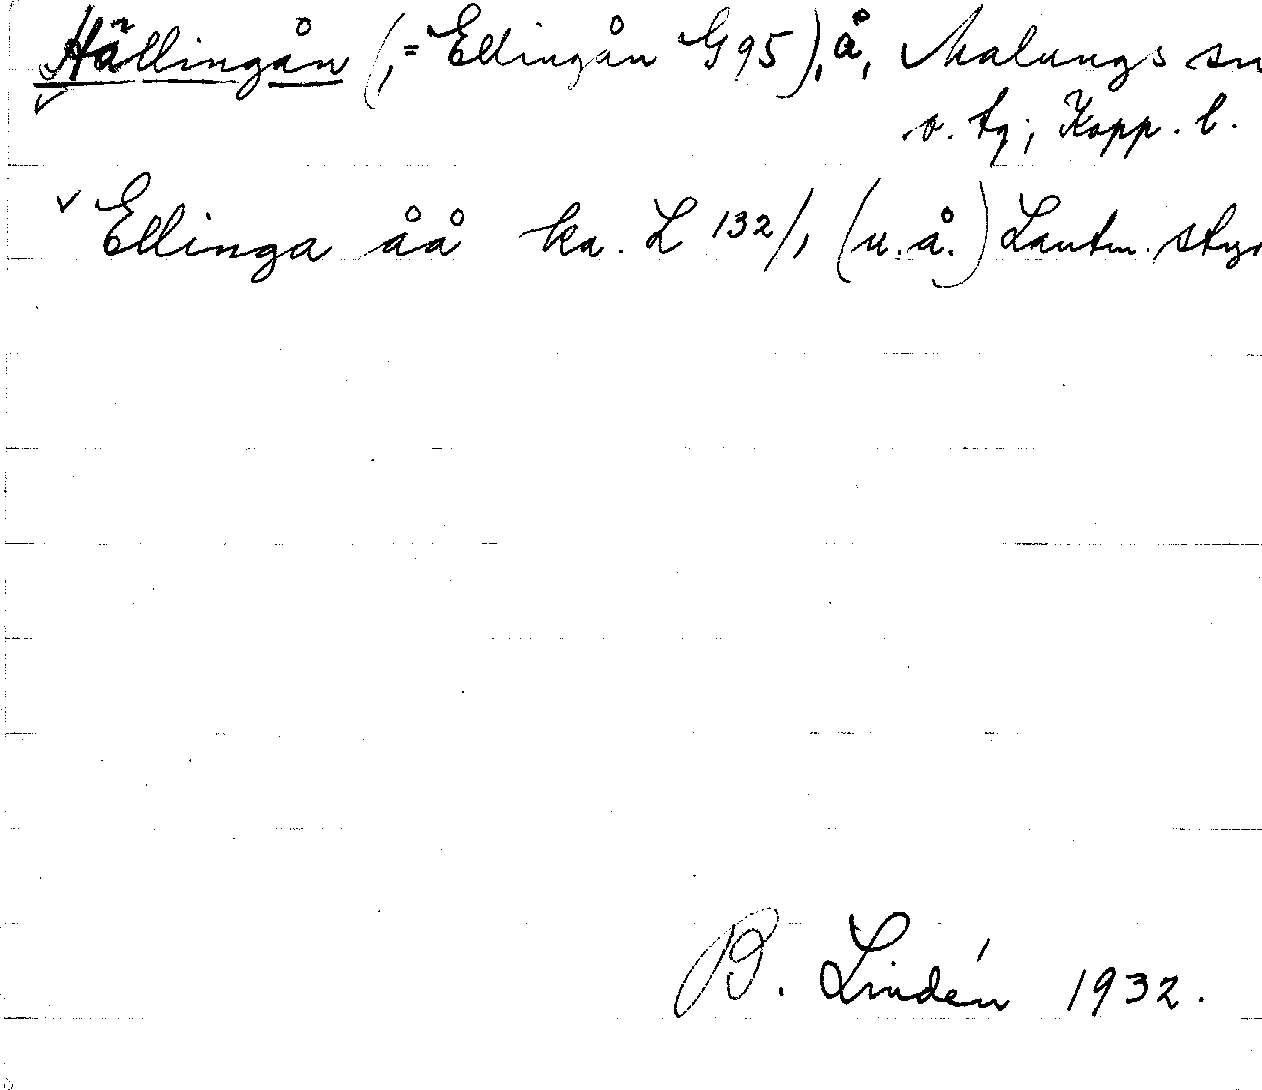 Hällingån (,= Ellingån G95), å, Malungs sn
o. tg; Kopp. l.
Ellinga åå ka. L 132/1 (u. å.) Lantm. styr
B. Lindén 1932.